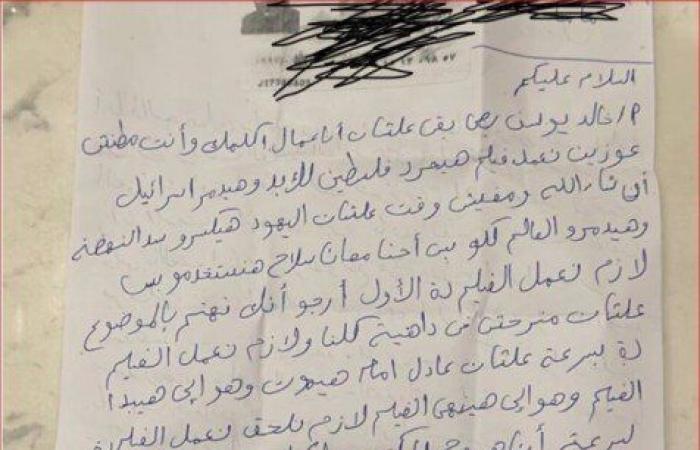 السلام عليكم
أ/ خالد يوسف بص بقى علشان أنا عمال أكلمك وأنت مطنش
عوزين نعمل فيلم هيحرر فلسطين للأبد وهيدمر اسرائيل
أن شاء الله ومفيش وقت علشان اليهود هيكسرو سد النهضة
وهيدمرو العالم كلو بس أحنا معانا سلاح هنستخدمو بس
لازم نعمل الفيلم دة الأول أرجو أنك تهتم بالموضوع
علشان منرحش فى داهية كلنا ولازم نعمل الفيلم
دة بسرعة علشان عادل امام هيموت وهو إلى هيبدأ
الفيلم وهو إلى هينهى الفيلم لازم نلحق نعمل الفلم
بسرعة